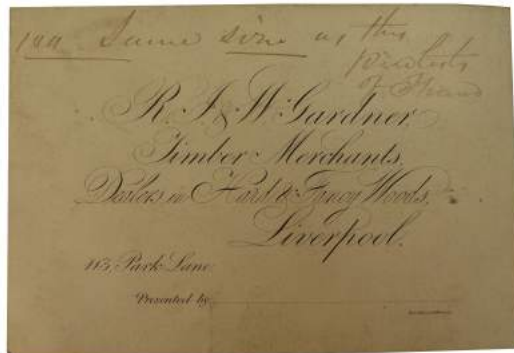 100 Same size as this
R. J. & W. Gardner
Timber Merchants,
Dealers in Hard & Fancy Woods,
Liverpool.
Park Lane.
Presented by